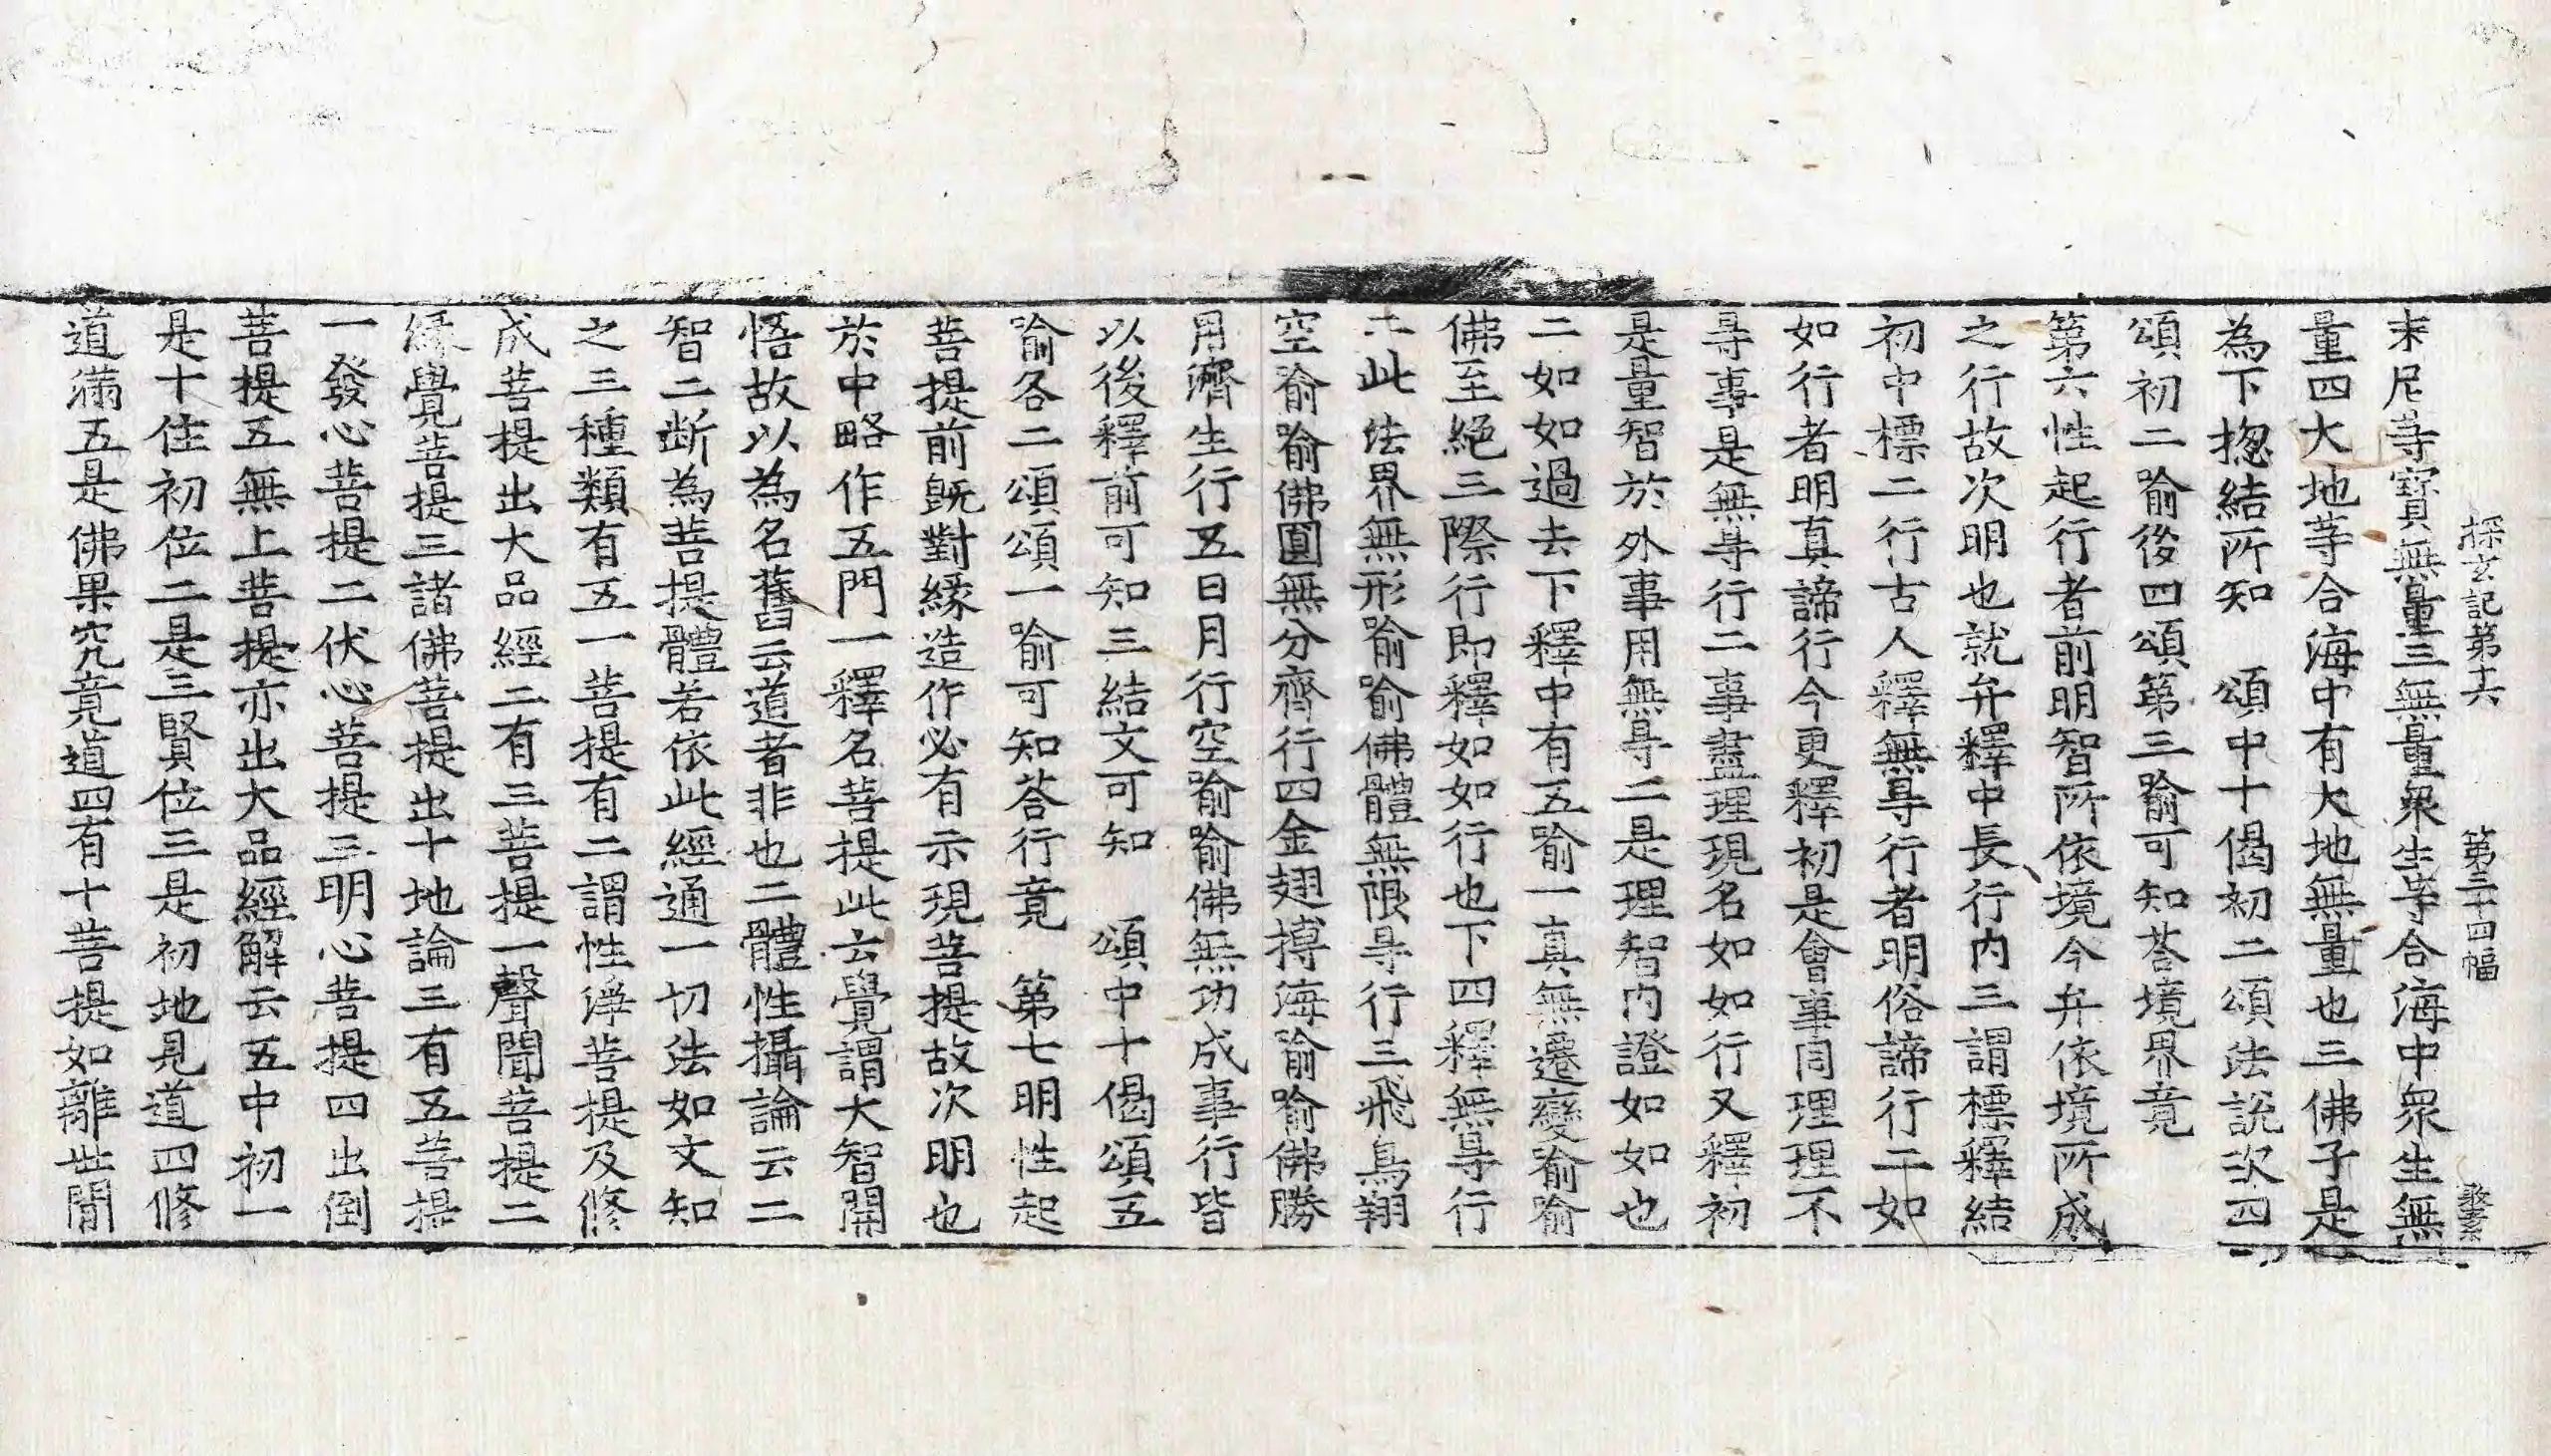 探玄記第十六　第三十四幅
末尼等寶無量三無量衆生等合海中衆生無
量四大地等合海中有大地無量也三佛子是
為下揔結所知　頌中十偈初二頌法說次四
頌初二喻後四頌第三喻可知荅境界竟
第六性起行者前明智所依境今弁依境所成
之行故次明也就弁釋中長行内三謂標釋結
初中標二行古人釋無㝵行者明俗諦行二如
如行者明真諦行今更釋初是會事同理理不
㝵事是無㝵行二事盡理現名如如行又釋初
是量智於外事用無㝵二是理智内證如如也
二如如過去下釋中有五喻一真無遷變喻喻
佛至絕三際行即釋如如行也下四釋無㝵行
二此法界無形喻喻佛體無限㝵行三飛鳥翔
空喻喻佛圓無分齊行四金翅搏海喻喻佛勝
用濟生行五日月行空喻喻佛無功成事行皆
以後釋前可知三結文可知　頌中十偈頌五
喻各二頌頌一喻可知荅行竟　第七明性起
菩提前旣對緣造作必有示現菩提故次明也
於中略作五門一釋名菩提此云覺謂大智開
悟故以為名舊云道者非也二體性攝論云二
智二断為菩提體若依此經通一切法如文知
之三種類有五一菩提有二謂性淨菩提及修
成菩提出大品經二有三菩提一聲聞菩提二
緣覺菩提三諸佛菩提出十地論三有五菩提
一發心菩提二伏心菩提三明心菩提四出倒
菩提五無上菩提亦出大品經解云五中初一
是十住初位二是三賢位三是初地見道四修
道滿五是佛果究竟道四有十菩提如離世間